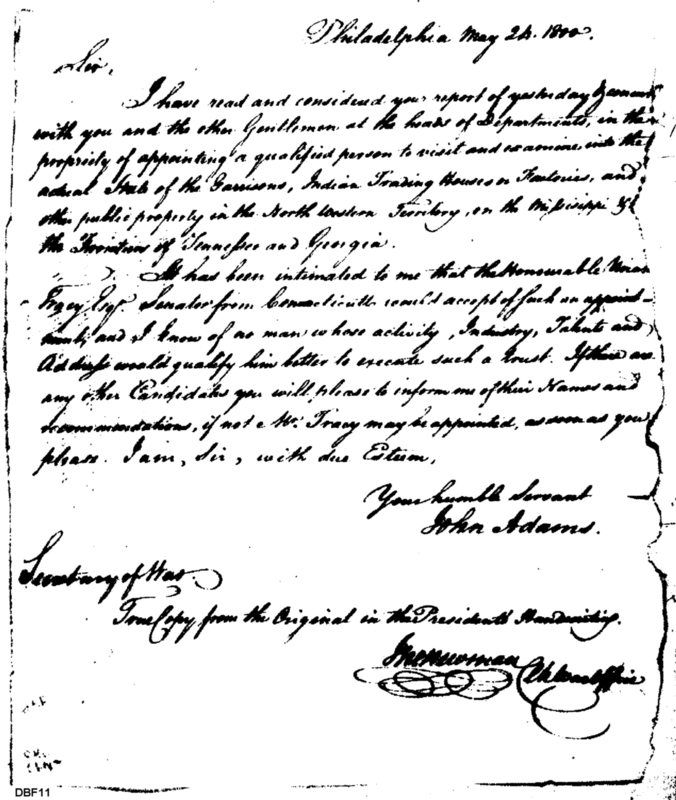 Philadelphia May 24. 1800.
Sir,
I have read and considered your report of yesterday & concur
with you and the other Gentlemen at the heads of Departments, in the
propriety of appointing a qualified person to visit and examine into the
actual State of the Garrisons, Indian Trading Houses or Factories, and
other public property in the North western Territory, on the Mississippi &
the Frontiers of Tennessee and Georgia.
It has been intimated to me that the Honourable Uriah
Tracy Esqr. Senator from Connecticutt would accept of such an appoint-
ment, and I know of no man whose activity, Industry, Talents and
Address would qualify him better to execute such a trust. If there are
any other Candidates you will please to inform me of their Names and
recommendations, if not Mr. Tracy may be appointed, as soon as you
please. I am, Sir, with due Esteem,
Your humble Servant
John Adams.
Secretary of War
True Copy, from the Original in the Presidents Handwriting.
Newman Clk War Office
DBF11